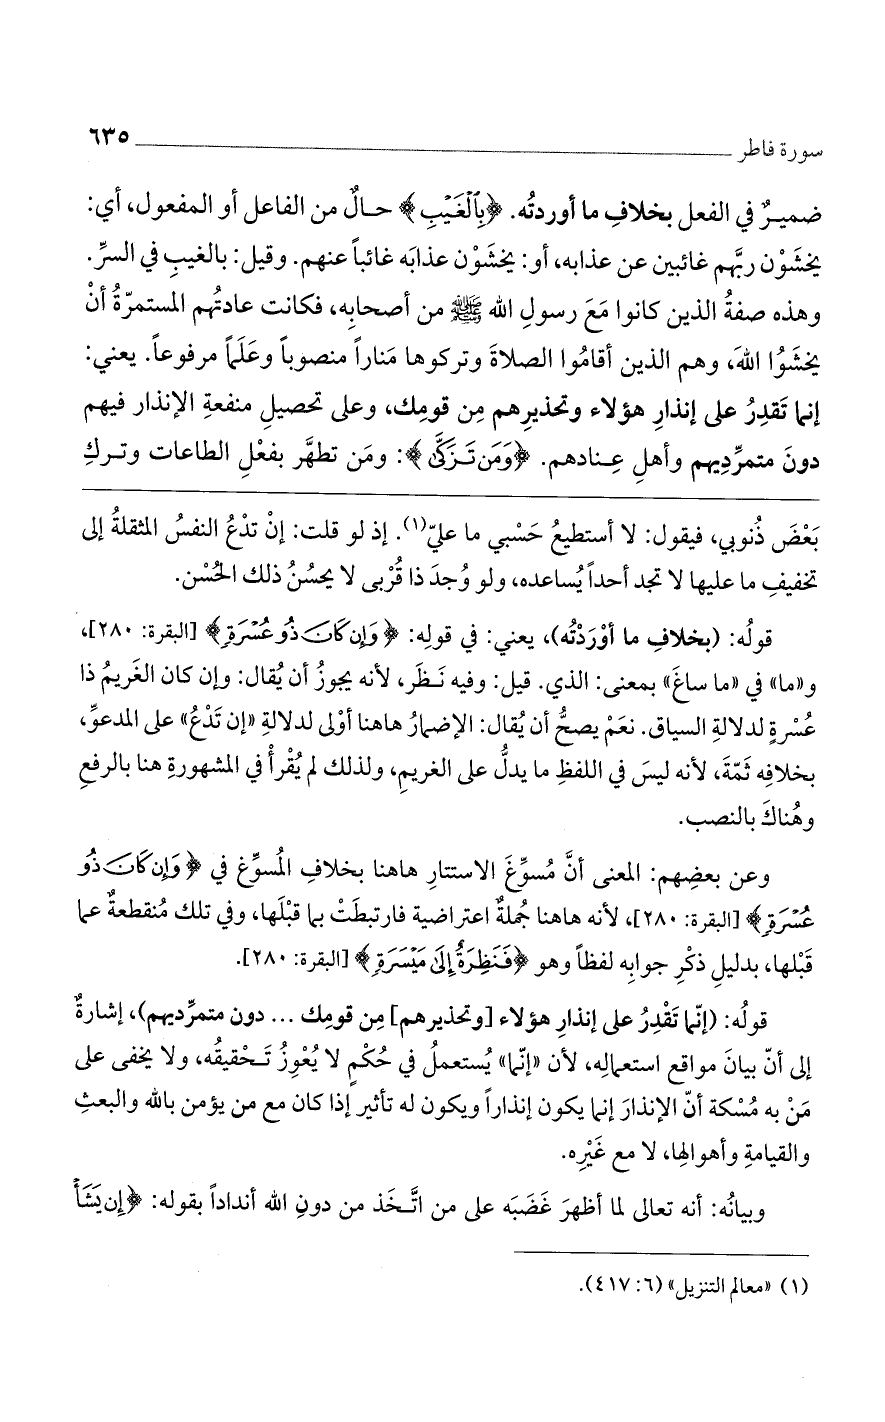 سورة فاطر ٦٣٥
ضميرٌ في الفعل بخلافِ ما أوردتُه. ﴿بِٱلْغَيْبِ﴾ حـالٌ من الفاعل أو المفعول، أي:
يخشَوْن ربَّهم غائبين عن عذابه، أو: يخشَوْن عذابَه غائباً عنهم. وقيل: بالغيبِ في السرِّ.
وهذه صفةُ الذين كانوا مَعَ رسولِ الله ﷺ من أصحابِه، فكانت عادتُهم المستمرّةُ أنْ
يخشَوُا اللهَ، وهم الذين أقامُوا الصلاةَ وتركوها مَناراً منصوباً وعَلَماً مرفوعاً. يعني:
إنما تَقدِرُ على إنذارِ هؤلاء وتحذيرِهم مِن قومِك، وعلى تحصيلِ منفعةِ الإنذار فيهم
دونَ متمرِّديهم وأهلِ عِـنادهم. ﴿وَمَن تَـزَكَّىٰ﴾: ومَن تطهَّر بفعْلِ الطاعات وتـركِ
بَعْضَ ذُنوبي، فيقول: لا أستطيعُ حَسْبي ما عليّ(١). إذ لو قلت: إنْ تدْعُ النفسُ المثقلةُ إلى
تخفيفِ ما عليها لا تجد أحداً يُساعده، ولو وُجدَ ذا قُربى لا يحسُنُ ذلك الحُسْن.
قولُه: (بخلافِ ما أوْرَدْتُه)، يعني: في قولِه: ﴿وَإِن كَانَ ذُو عُسْرَةٍ﴾ [البقرة: ٢٨٠]،
و«ما» في «ما ساغَ» بمعنى: الذي. قيل: وفيه نَـظَر، لأنه يجوزُ أن يُقال: وإن كان الغَريمُ ذا
عُسْرةٍ لدلالةِ السياق. نعَمْ يصحُّ أن يُقال: الإضمارُ هاهنا أوْلى لدلالةِ «إن تَدْعُ» على المدعوِّ،
بخلافِه ثَمّةَ، لأنه ليسَ في اللفظِ ما يدلُّ على الغريمِ، ولذلك لم يُقْرأْ في المشهورةِ هنا بالرفعِ
وهُناكَ بالنصب.
وعن بعضِهم: المعنى أنَّ مُسوِّغَ الاستتارِ هاهنا بخلافِ المُسوِّغ في ﴿وَإِن كَانَ ذُو
عُسْرَةٍ﴾ [البقرة: ٢٨٠]، لأنه هاهنا جُملةٌ اعتراضية فارتبطَتْ بما قبْلَها، وفي تلك مُنقطعةٌ عما
قَبْلها، بدليلِ ذكْرِ جوابِه لفظاً وهو ﴿فَنَظِرَةٌ إِلَىٰ مَيْسَرَةٍ﴾ [البقرة: ٢٨٠].
قولُه: (إنّما تَقْدِرُ على إنذارِ هؤلاء [وتحذيرهم] مِن قومِك ... دون متمرِّديهم)، إشارةٌ
إلى أنّ بيانَ مواقع استعمالِه، لأن «إنّما» يُستعملُ في حُكْمٍ لا يُعْوِزُ تَـحْقيقُه، ولا يخفى على
مَنْ به مُسْكة أنّ الإنذارَ إنما يكون إنذاراً ويكون له تأثير إذا كان مع من يؤمن بالله والبعثِ
والقيامةِ وأهوالِها، لا مع غَيْرِه.
وبيانُه: أنه تعالى لما أظهرَ غَضَبَه على من اتَّـخَذ من دونِ الله أنداداً بقوله: ﴿إِن يَشَأْ
(١) «معالم التنزيل» (٦: ٤١٧).